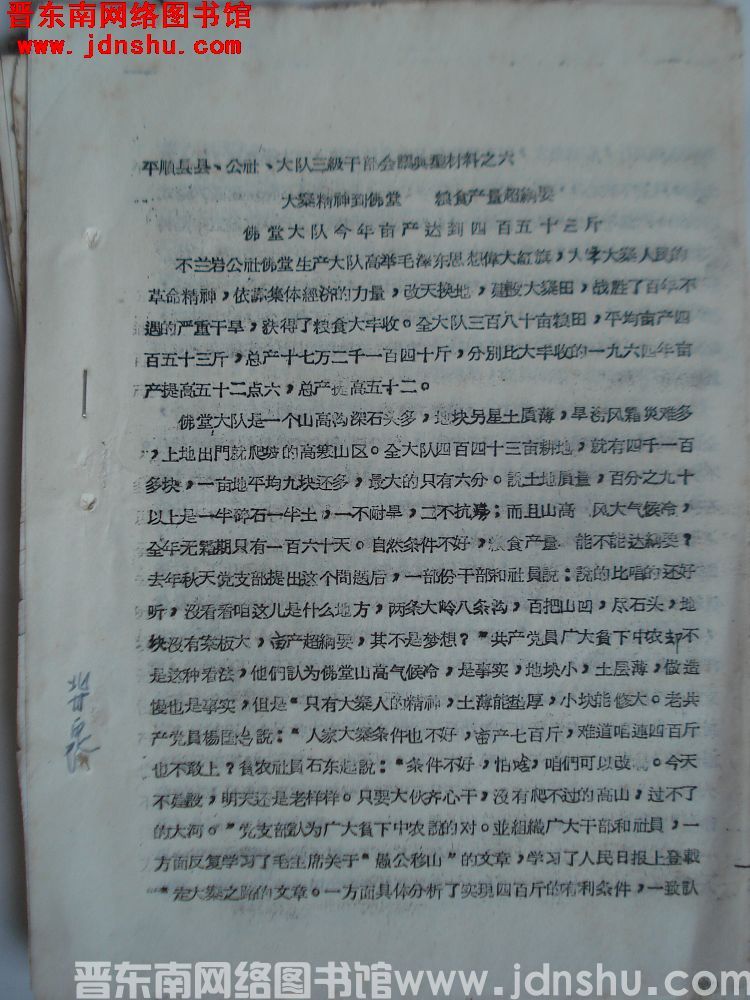 晋东南网络图书馆
www.jdnshu.com
平順县县、公社、大队三級干部会議典型材料之六
大寨精神到佛堂 粮食产量超綱要
佛堂大队今年亩产达到四百五十三斤
不兰岩公社佛堂生产大队高举毛泽东思想偉大紅旗，大学大寨人民的
革命精神，依靠集体經济的力量，改天换地，建設大寨田，战胜了百年不
遇的严重干旱，获得了粮食大丰收。全大队三百八十亩粮田，平均亩产四
百五十三斤，总产十七万二千一百四十斤，分别比大丰收的一九六四年亩
产提高五十二点六，总产提高五十二。
佛堂大队是一个山高沟深石头多，地块另星土质薄，旱涝风霜災难多
，上地出門就爬坡的高寒山区。全大队四百四十三亩耕地，就有四千一百
多块，一亩地平均九块还多，最大的只有六分。說土地质量，百分之九十
以上是一半碎石一半土，一不耐旱，二不抗涝；而且山高 风大气候冷，
全年无霜期只有一百六十天。自然条件不好，粮食产量 能不能达綱要？
去年秋天党支部提出这个問題后，一部份干部和社員說：說的比唱的还好
听，没看看咱这儿是什么地方，两条大岭八条沟，百把山凹，尽石头，地
块没有案板大，亩产超綱要，其不是梦想？"共产党員广大貧下中农却不
是这种看法，他們認为佛堂山高气候冷，是事实，地块小，土层薄，做造
慢也是事实，但是"只有大寨人的精神，土薄能垫厚，小块能修大。老共
产党員楊 說："人家大寨条件也不好，亩产七百斤，难道咱連四百斤
也不敢上？貧农社員石东 說："条件不好，怕啥，咱們可以改 。今天
不建設，明天还是老样样。只要大伙齐心干，没有爬不过的高山，过不了
的大河。"党支部认为广大貧下中农話的对。並組織广大干部和社員，一
方面反复学习了毛主席关于"愚公移山"的文章，学习了人民日报上登載
""走大寨之路的文章。一方面具体分析了实現四百斤的有利条件，一致認
井泉
晋东南网络图书馆www.jdnshu.com